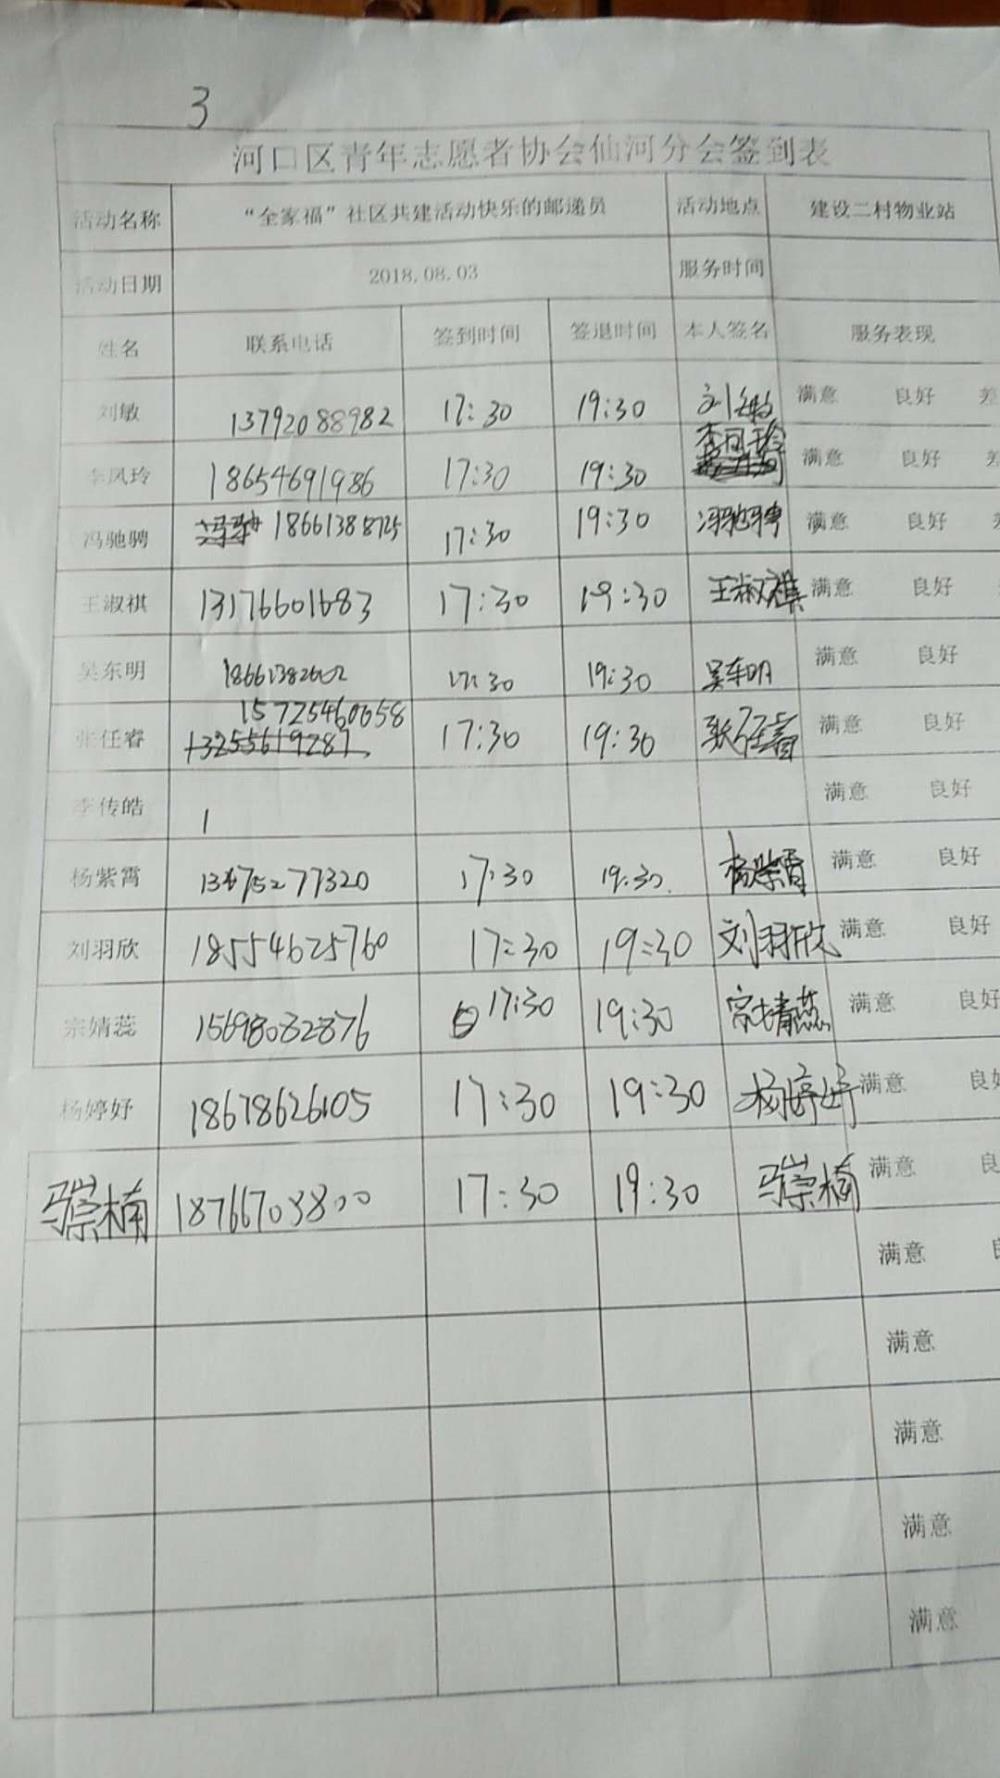 3
河口区青年志愿者协会仙河分会签到表
活动名称 “全家福”社区共建活动快乐的邮递员 活动地点 建设二村物业站
活动日期 2018.08.03 服务时间
姓名 联系电话 签到时间 签退时间 本人签名 服务表现
刘敏 13792088982 17:30 19:30 刘敏 满意 良好 差
李凤玲 18654691986 17:30 19:30 李凤玲 满意 良好 差
冯驰骋 18661388725 17:30 19:30 冯驰骋 满意 良好
王淑祺 13176601683 17:30 19:30 王淑祺 满意 良好
吴东明 17:30 19:30 吴东明 满意 良好
张任睿 15725460658 17:30 19:30 张任睿 满意 良好
13255619287
李传皓 满意 良好
杨紫霄 13675277320 17:30 19:30 杨紫霄 满意 良好
刘羽欣 18554625760 17:30 19:30 刘羽欣 满意 良好
宗婧蕊 15698082876 17:30 19:30 宗婧蕊 满意 良好
杨婷妤 18678626105 17:30 19:30 杨婷妤 满意 良好
马崇楠 18766703800 17:30 19:30 马崇楠 满意 良
满意
满意
满意
满意
满意